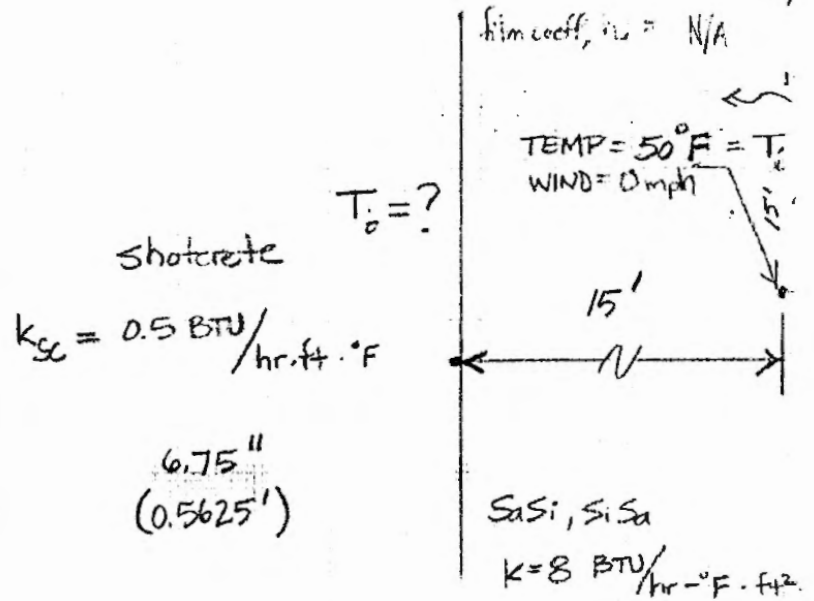 film coeff, = N/A
TEMP = 50°F = Ti
WIND = 0 mph
15'
To = ?
shotcrete
15'
ksc = 0.5 BTU/hr.ft.°F
6.75"
(0.5625')
SaSi, SiSa
k=8 BTU/hr-°F.ft²